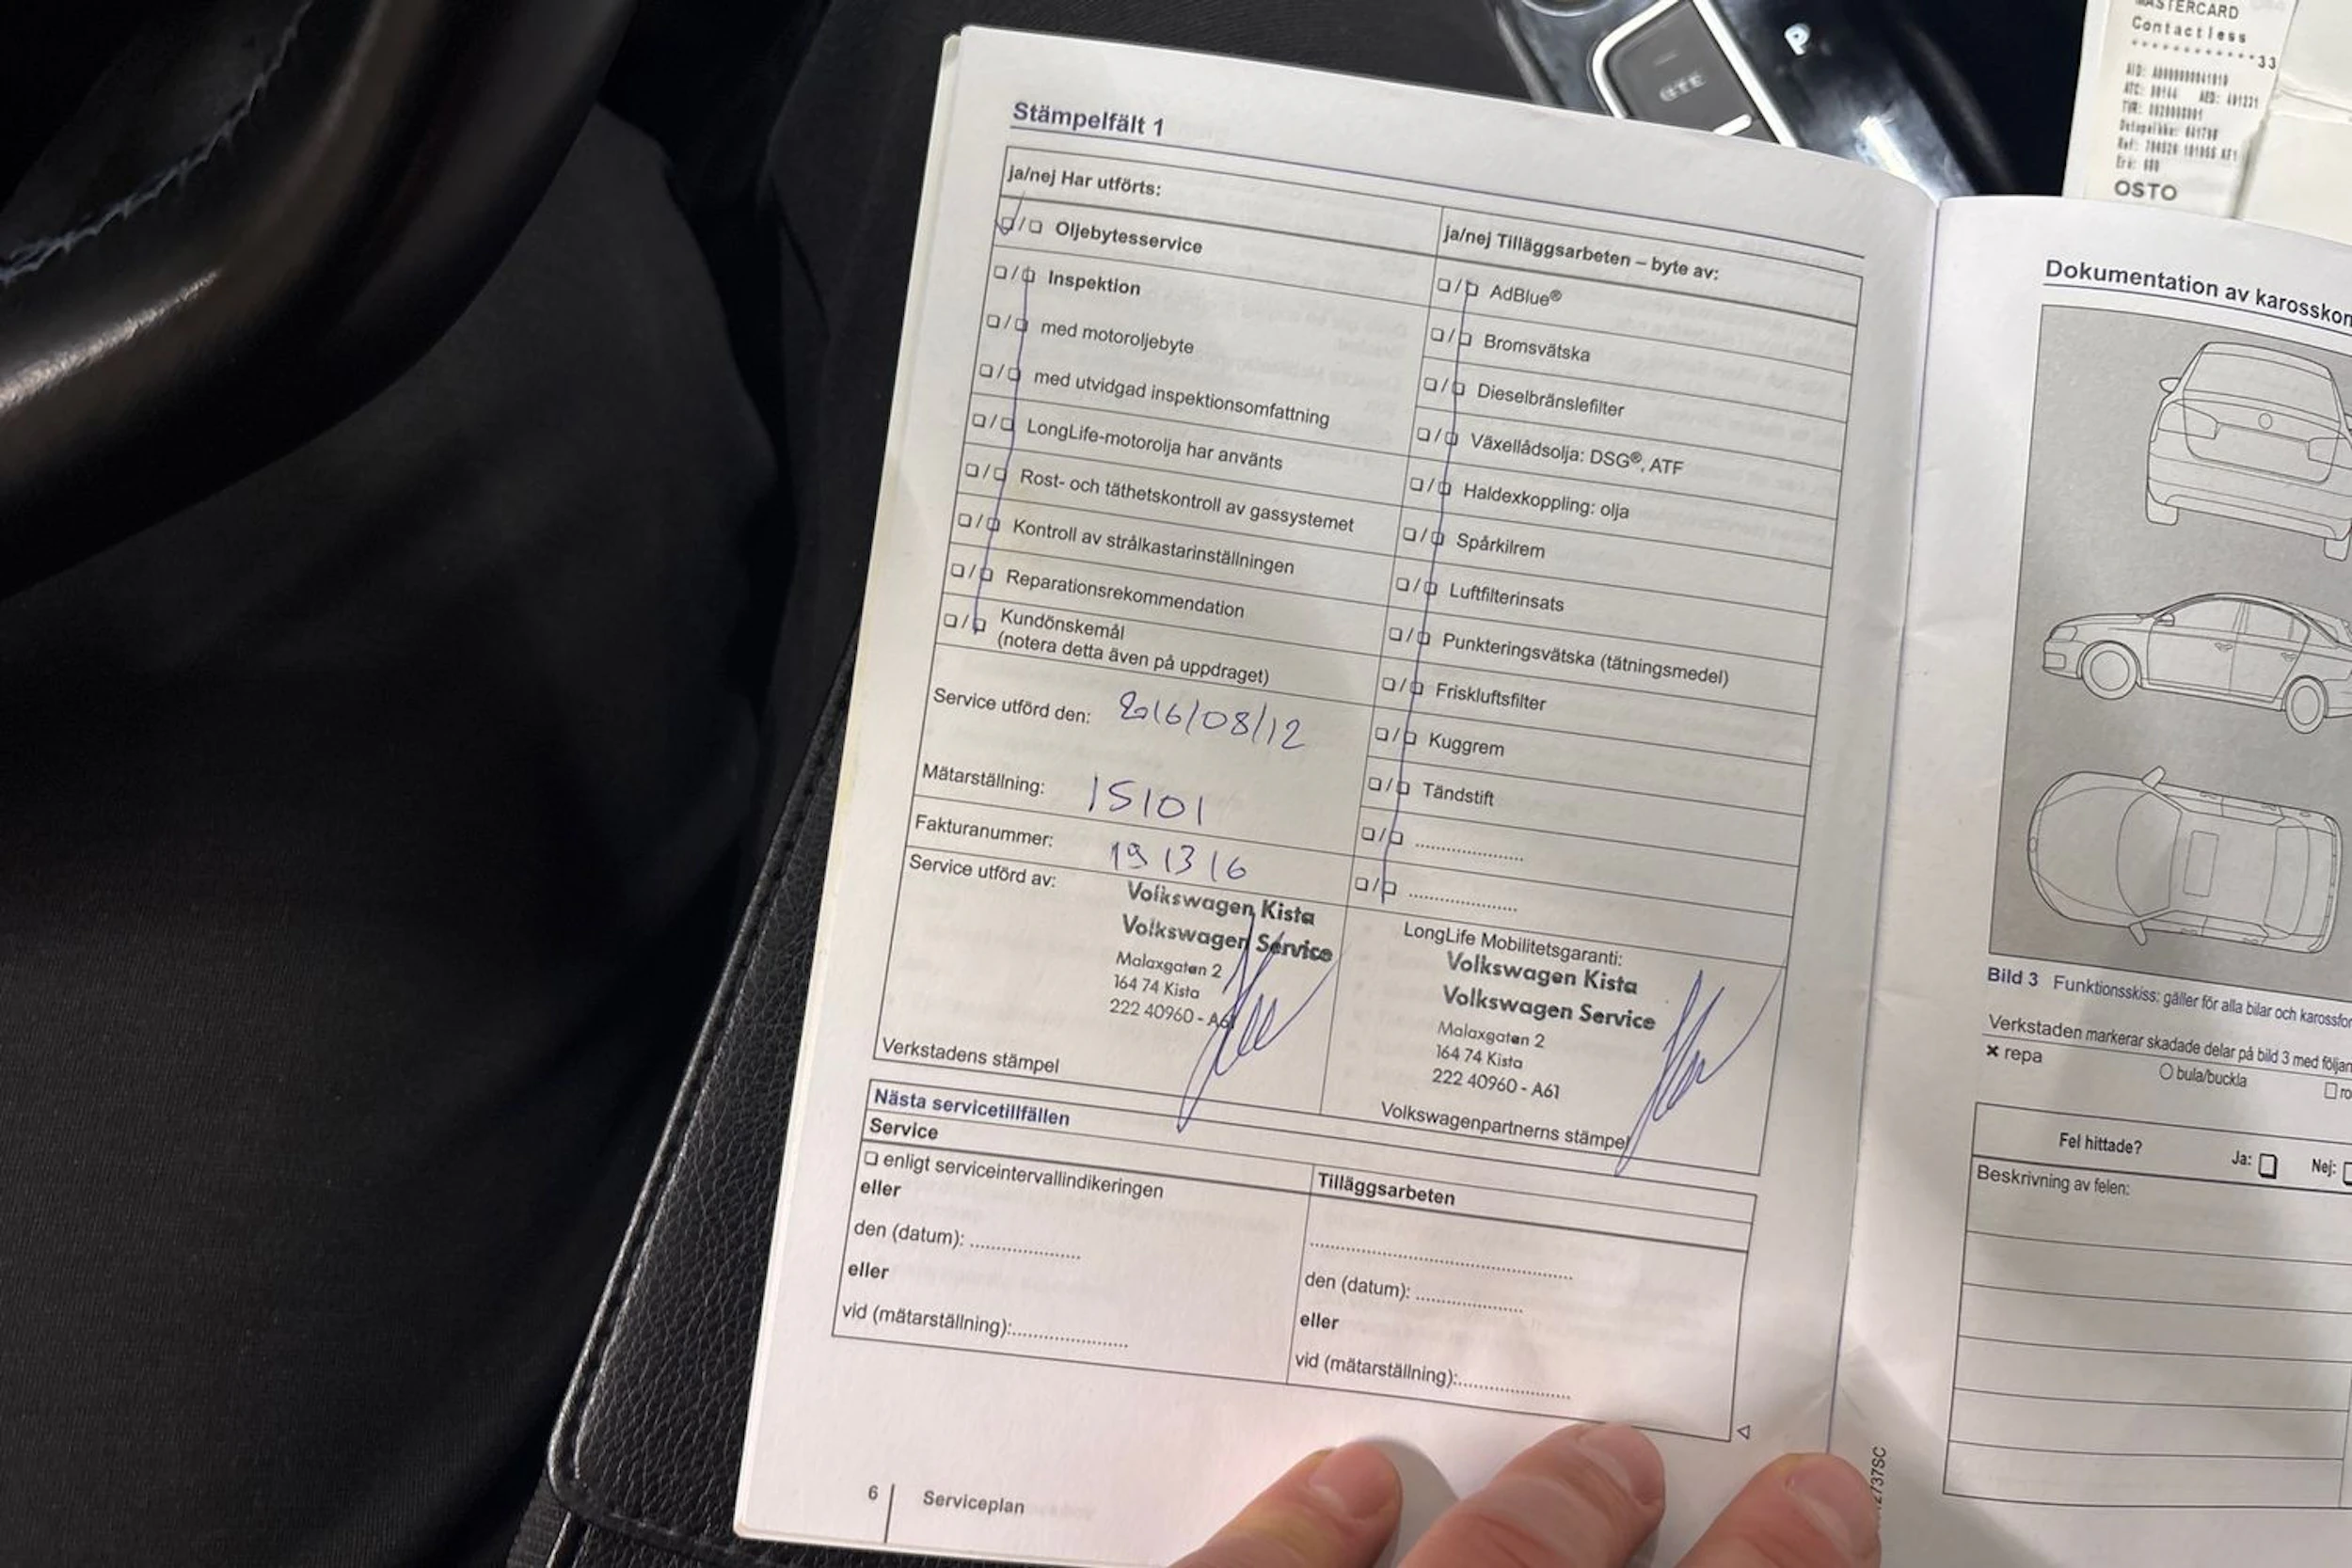 Stämpelfält 1
ja/nej Har utförts:
❏/❏ Oljebytesservice
❏/❏ Inspektion
❏/❏ med motoroljebyte
❏/❏ med utvidgad inspektionsomfattning
❏/❏ LongLife-motorolja har använts
❏/❏ Rost- och täthetskontroll av gassystemet
❏/❏ Kontroll av strålkastarinställningen
❏/❏ Reparationsrekommendation
❏/❏ Kundönskemål
(notera detta även på uppdraget)
Service utförd den: 2016/08/12
Mätarställning: 15101
Fakturanummer: 191316
Service utförd av:
Volkswagen Kista
Volkswagen Service
Malaxgatan 2
164 74 Kista
222 40960 - A61
Verkstadens stämpel
ja/nej Tilläggsarbeten – byte av:
❏/❏ AdBlue®
❏/❏ Bromsvätska
❏/❏ Dieselbränslefilter
❏/❏ Växellådsolja: DSG®, ATF
❏/❏ Haldexkoppling: olja
❏/❏ Spårkilrem
❏/❏ Luftfilterinsats
❏/❏ Punkteringsvätska (tätningsmedel)
❏/❏ Friskluftsfilter
❏/❏ Kuggrem
❏/❏ Tändstift
❏/❏ ......................
❏/❏ ......................
LongLife Mobilitetsgaranti:
Volkswagen Kista
Volkswagen Service
Malaxgatan 2
164 74 Kista
222 40960 - A61
Volkswagenpartnerns stämpel
Nästa servicetillfällen
Service
❏ enligt serviceintervallindikeringen
eller
den (datum): ......................
eller
vid (mätarställning):......................
Tilläggsarbeten
......................
den (datum): ......................
eller
vid (mätarställning):......................
6 Serviceplan
Dokumentation av
Bild 3 Funktionsskiss: gäller för alla bilar och
Verkstaden markerar skadade delar på bild 3 med
× repa
○ bula/buckla
Fel hittade? Ja: ❏ Nej: ❏
Beskrivning av felen:
GTE
P
MASTERCARD
Contactless
************33
OSTO